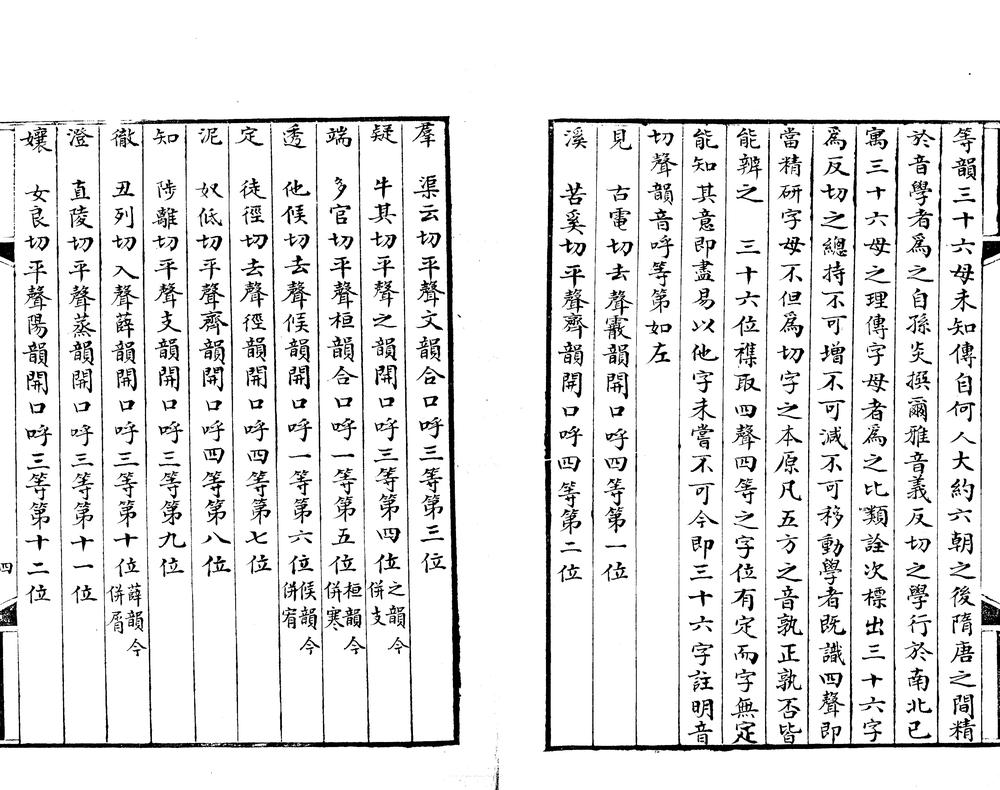 等韻三十六母未知傳自何人大約六朝之後隋唐之間精
於音學者爲之自孫炎撰爾雅音義反切之學行於南北已
寓三十六母之理傳字母者爲之比類詮次標出三十六字
爲反切之總持不可增不可減不可移動學者既識四聲即
當精研字母不但爲切字之本原凡五方之音孰正孰否皆
能辨之 三十六位襍取四聲四等之字位有定而字無定
能知其意即盡易以他字未嘗不可今即三十六字註明音
切聲韻音呼等第如左
見 古電切去聲霰韻開口呼四等第一位
溪 苦奚切平聲齊韻開口呼四等第二位
羣 渠云切平聲文韻合口呼三等第三位
疑 牛其切平聲之韻開口呼三等第四位之韻今併支
端 多官切平聲桓韻合口呼一等第五位桓韻今併寒
透 他候切去聲候韻開口呼一等第六位候韻今併宥
定 徒徑切去聲徑韻開口呼四等第七位
泥 奴低切平聲齊韻開口呼四等第八位
知 陟離切平聲支韻開口呼三等第九位
徹 丑列切入聲薛韻開口呼三等第十位薛韻今併屑
澄 直陵切平聲蒸韻開口呼三等第十一位
孃 女良切平聲陽韻開口呼三等第十二位
四